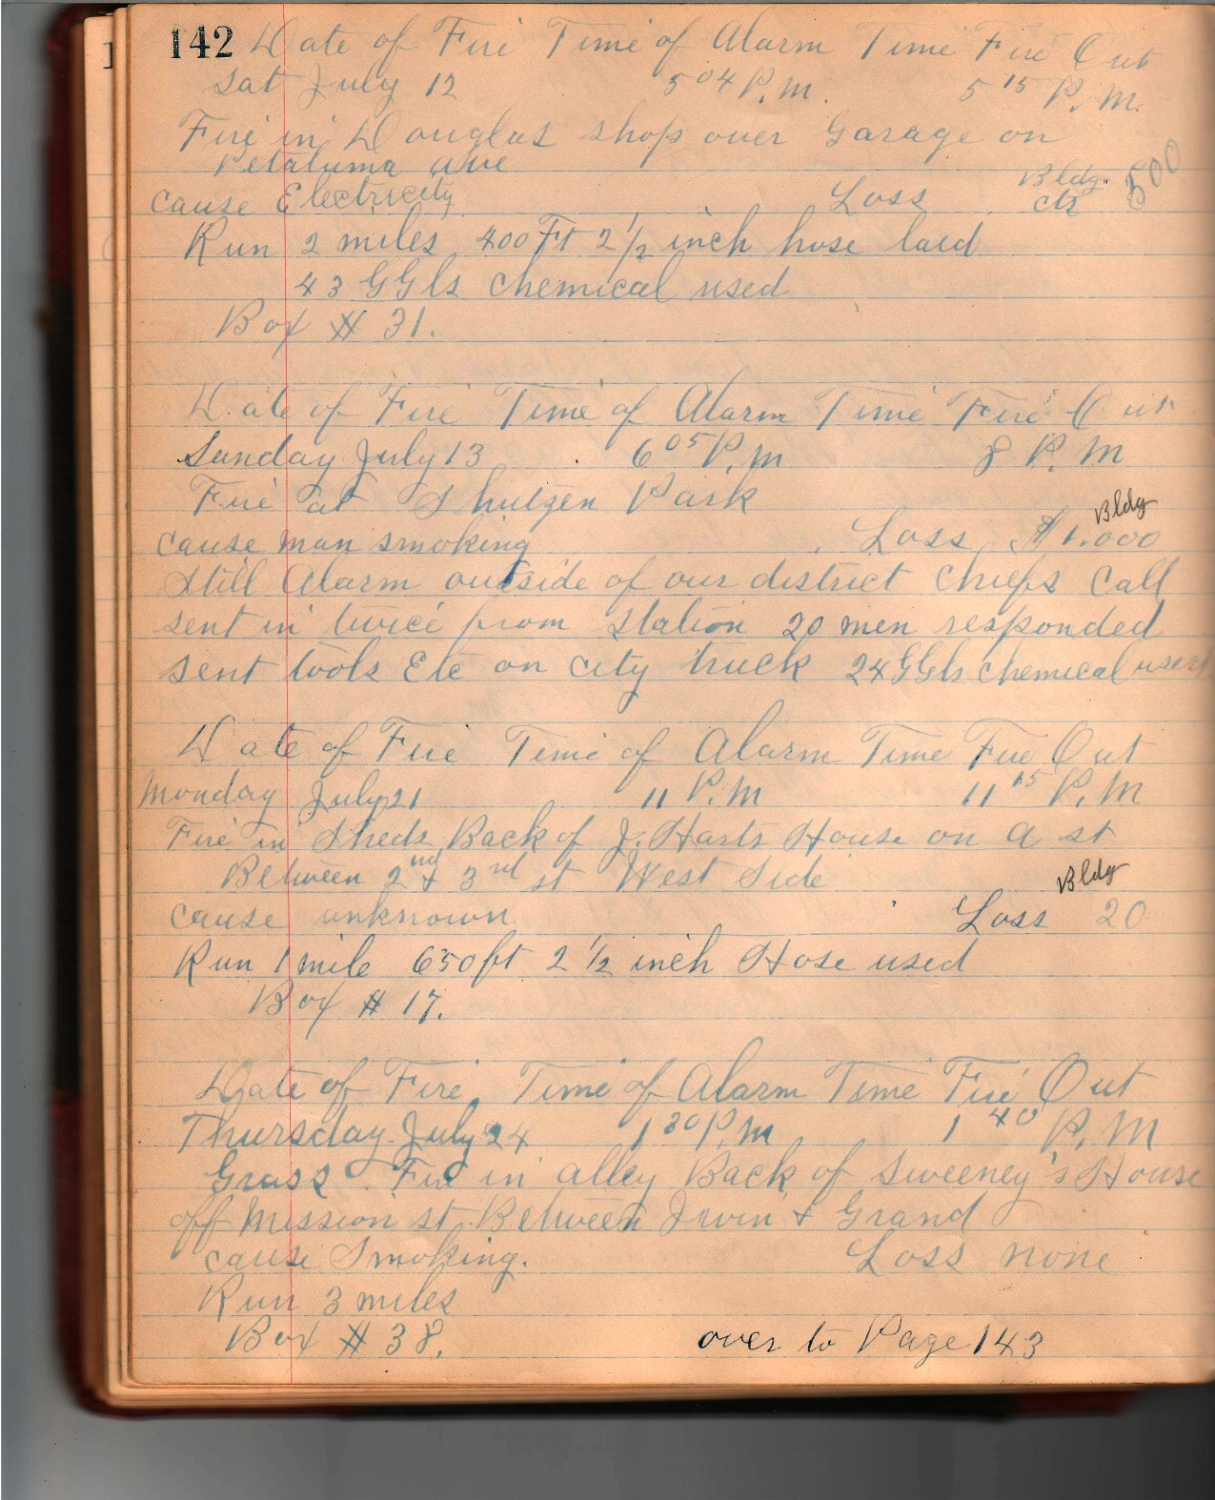 142 Date of Fire Time of Alarm Time Fire Out
Sat July 12 5 04 P.M. 5 15 P.M.
Fire in Douglas shop over Garage on
Petaluma Ave
Bldg. 500
cause Electricity Loss
Run 2 miles 400 Ft 2 1/2 inch hose laid
43 GGls chemical used
Box # 31.
Date of Fire Time of Alarm Time Fire Out
Sunday July 13 6 05 P.M 8 P.M
Fire at Shutzen Park
Bldg
cause man smoking Loss $1.000
Still Alarm outside of our district Chiefs Call
sent in twice from station 20 men responded
sent tools Etc on city truck 24 GGls chemical used
Date of Fire Time of Alarm Time Fire Out
Monday July 21 11 P.M 11 15 P.M
Fire in Sheds Back of J. Harts House on A st
Between 2nd & 3rd st West Side
Bldg
cause unknown Loss 20
Run 1 mile 650 ft 2 1/2 inch Hose used
Box # 17.
Date of Fire Time of Alarm Time Fire Out
Thursday July 24 1 30 P.M 1 40 P.M
Grass Fire in alley Back of Sweeney's House
off Mission st Between Irwin & Grand
cause Smoking. Loss none
Run 3 miles
Box # 38.
over to Page 143